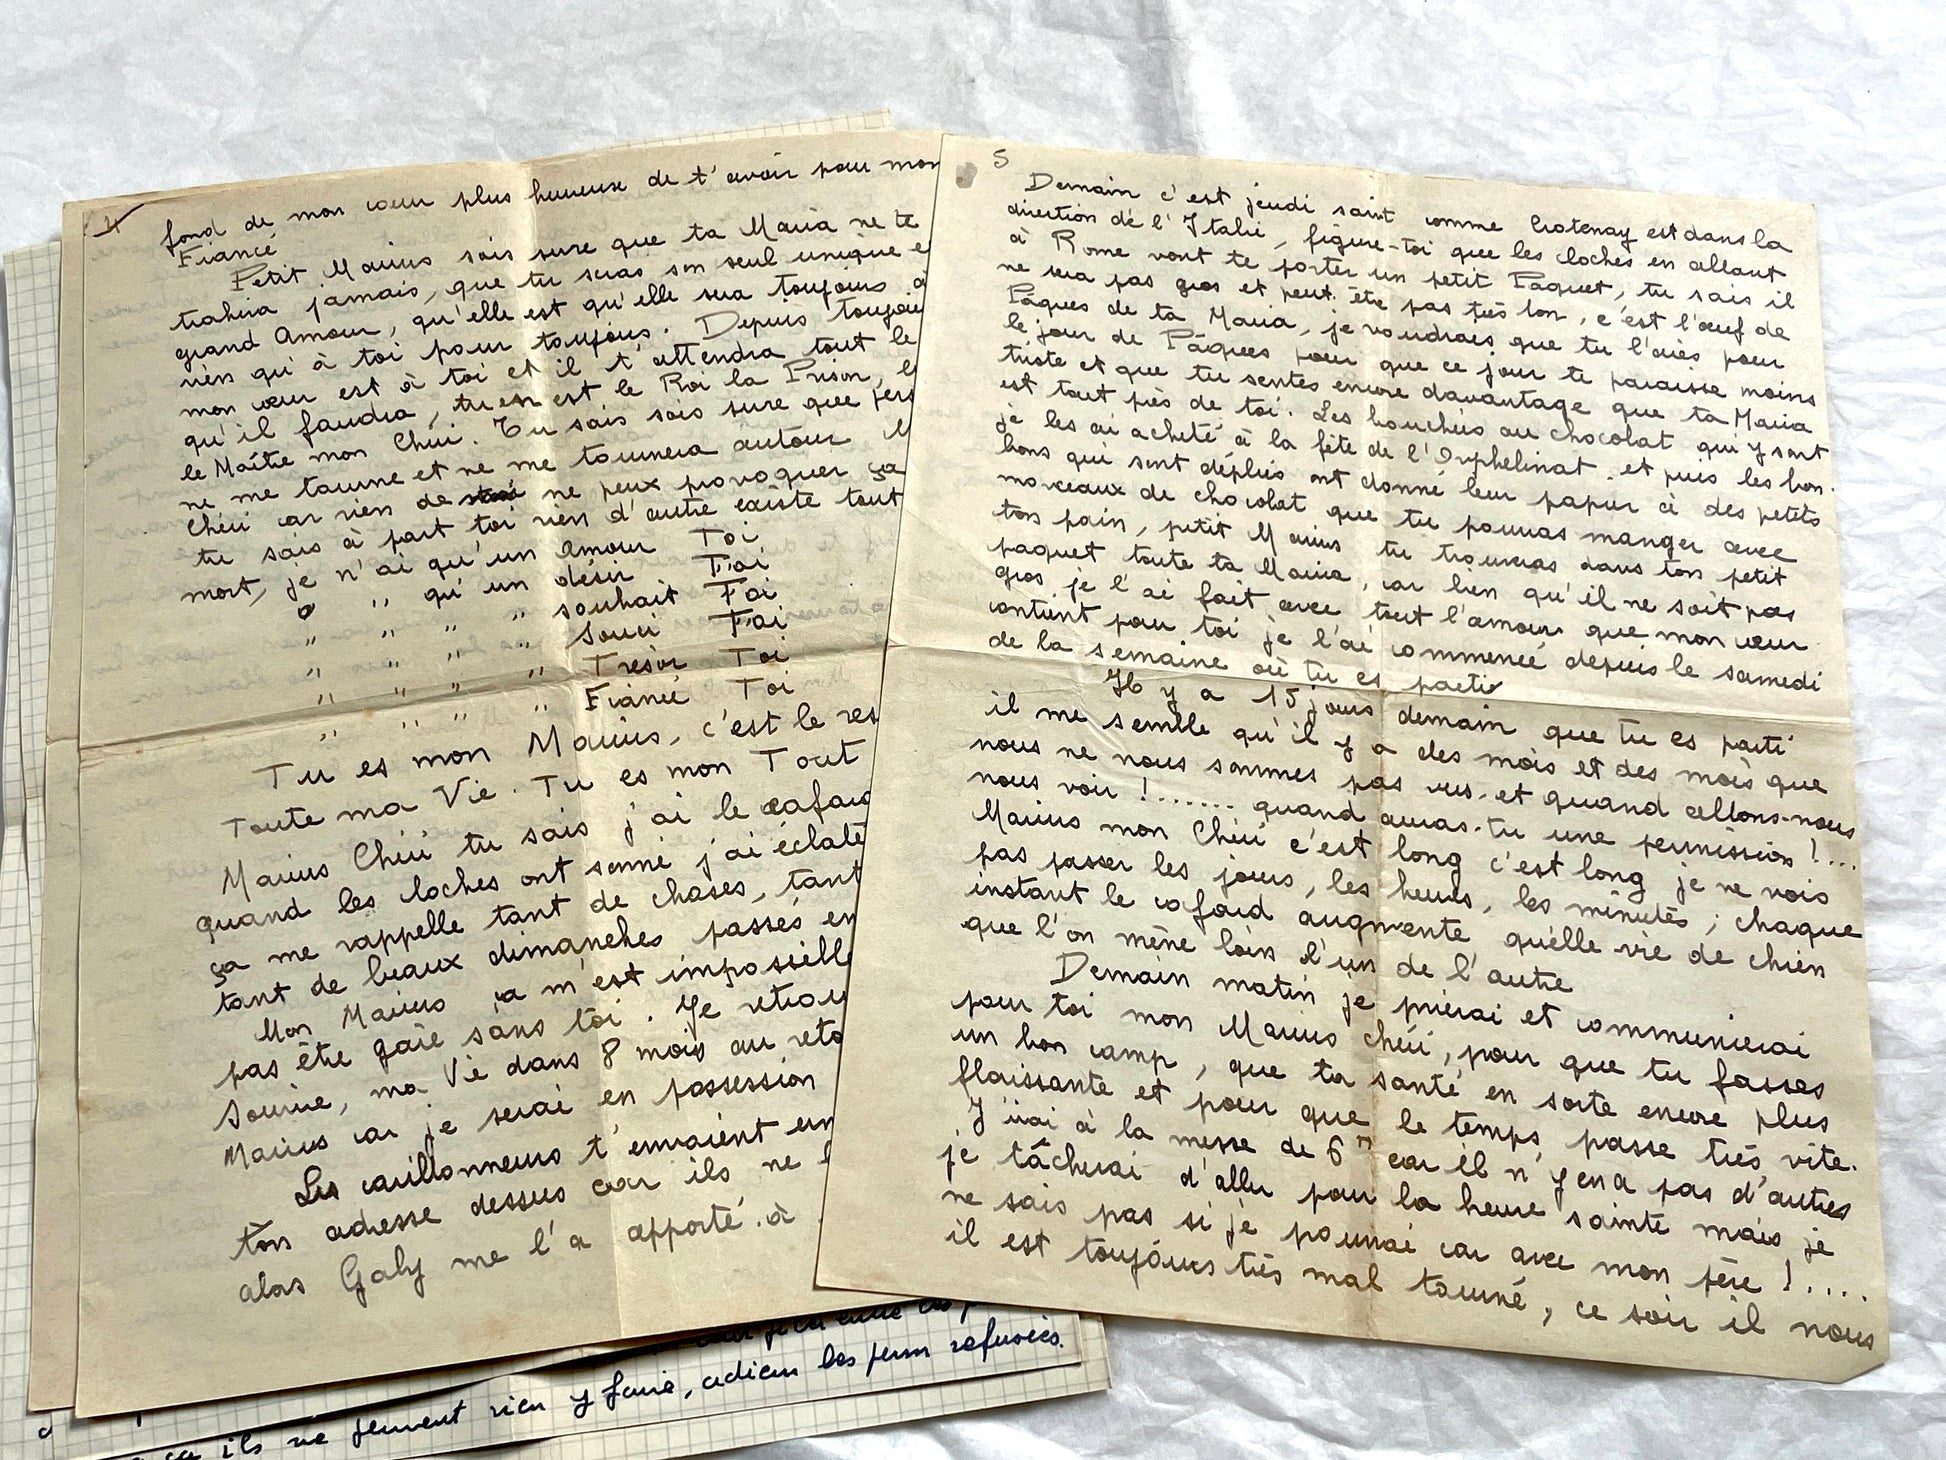 4
fond de mon cœur plus heureuse de t'avoir pour mon
Fiancé
Petit Marius sois sure que ta Maria ne te
trahira jamais, que tu seras son seul unique e
grand Amour, qu'elle est qu'elle sera toujours à
rien qu'à toi pour toujours. Depuis toujou
mon cœur est à toi et il t'attendra tout le
qu'il faudra, tu en est le Roi la Prison, l
le Maître mon Chéri. Tu sais sois sure que pers
ne me tourne et ne me tournera autour M
Chéri car rien de ne peux provoquer ça
tu sais à part toi rien d'autre existe tout
mort, je n'ai qu'un Amour Toi
" qu'un désir Toi
" " " " souhait Toi
" " " " Souci Toi
" " " " Trésor Toi
" " " " Fiancé Toi
Tu es mon Marius, c'est le res
Toute ma Vie. Tu es mon Tout
Marius Chéri tu sais j'ai le cafard
quand les cloches ont sonné j'ai éclaté
ça me rappelle tant de choses, tant
tant de beaux dimanches passés en
Mon Marius ça m'est impossible
pas être gaie sans toi. Je retrou
Sourire, ma Vie dans 8 mois au reto
Marius car je serai en possession
Les carillonneurs t'envoient un
ton adresse dessus car ils ne l
alors Galy me l'a apporté. à
5
Demain c'est jeudi saint comme Chatenay est dans la
direction de l'Italie, figure-toi que les cloches en allant
à Rome vont te porter un petit Paquet, tu sais il
ne sera pas gros et peut être pas très bon, c'est l'œuf de
Pâques de ta Maria, je voudrais que tu l'aies pour
le jour de Pâques pour que ce jour te paraisse moins
triste et que tu sentes encore davantage que ta Maria
est tout près de toi. Les bouchées au chocolat qui y sont
je les ai acheté à la fête de l'Orphelinat et puis les bon-
bons qui sont dépliés ont donné leur papier à des petits
morceaux de chocolat que tu pourras manger avec
ton pain, petit Marius tu trouveras dans ton petit
paquet toute ta Maria, car bien qu'il ne soit pas
gros je l'ai fait avec tout l'amour que mon cœur
contient pour toi je l'ai commencé depuis le samedi
de la semaine où tu es parti
Il y a 15 jours demain que tu es parti
il me semble qu'il y a des mois et des mois que
nous ne nous sommes pas vus, et quand allons-nous
nous voir !....... quand auras-tu une permission !...
Marius mon Chéri c'est long c'est long je ne vois
pas passer les jours, les heures, les minutes ; chaque
instant le cafard augmente quelle vie de chien
que l'on mène loin l'un de l'autre
Demain matin je prierai et communierai
pour toi mon Marius chéri, pour que tu fasses
un bon camp, que ta santé en sorte encore plus
flaissante et pour que le temps passe très vite.
J'irai à la messe de 6h car il n'y en a pas d'autres
je tâcherai d'aller pour la heure sainte mais je
ne sais pas si je pourrai car avec mon père !....
il est toujours très mal tourné, ce soir il nous
ça ils ne peuvent rien y faire, adieu les perm refusées.